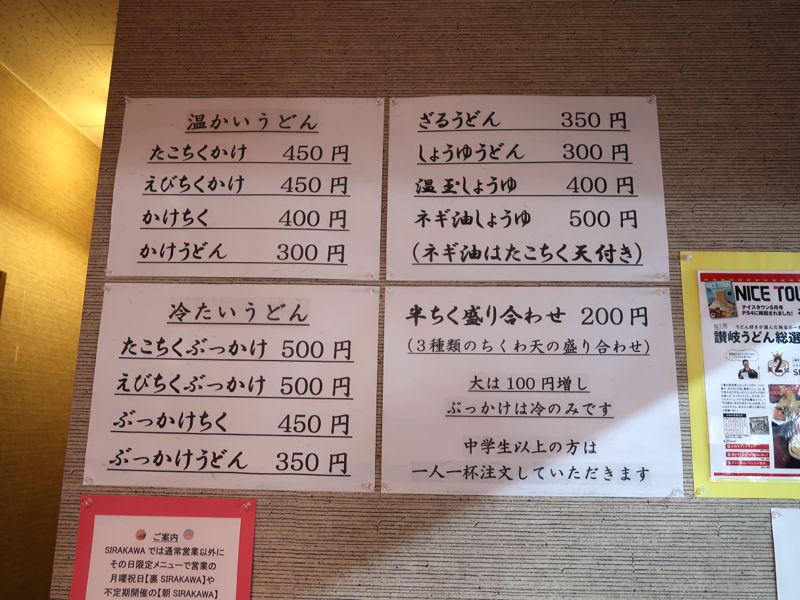 温かいうどん
たこちくかけ 450円
えびちくかけ 450円
かけちく 400円
かけうどん 300円
ざるうどん 350円
しょうゆうどん 300円
温玉しょうゆ 400円
ネギ油しょうゆ 500円
(ネギ油はたこちく天付き)
冷たいうどん
たこちくぶっかけ 500円
えびちくぶっかけ 500円
ぶっかけちく 450円
ぶっかけうどん 350円
半ちく盛り合わせ 200円
(3種類のちくわ天の盛り合わせ)
大は100円増し
ぶっかけは冷のみです
中学生以上の方は
一人一杯注文していただきます
NICE TOU
ナイスタウン5月号
P54に掲載されました!
うどん好きが選んだ極玉の一杯
讃岐うどん総選
ご案内
SIRAKAWAでは通常営業以外に
その日限定メニューで営業の
月曜祝日【裏SIRAKAWA】や
不定期開催の【朝SIRAKAWA】